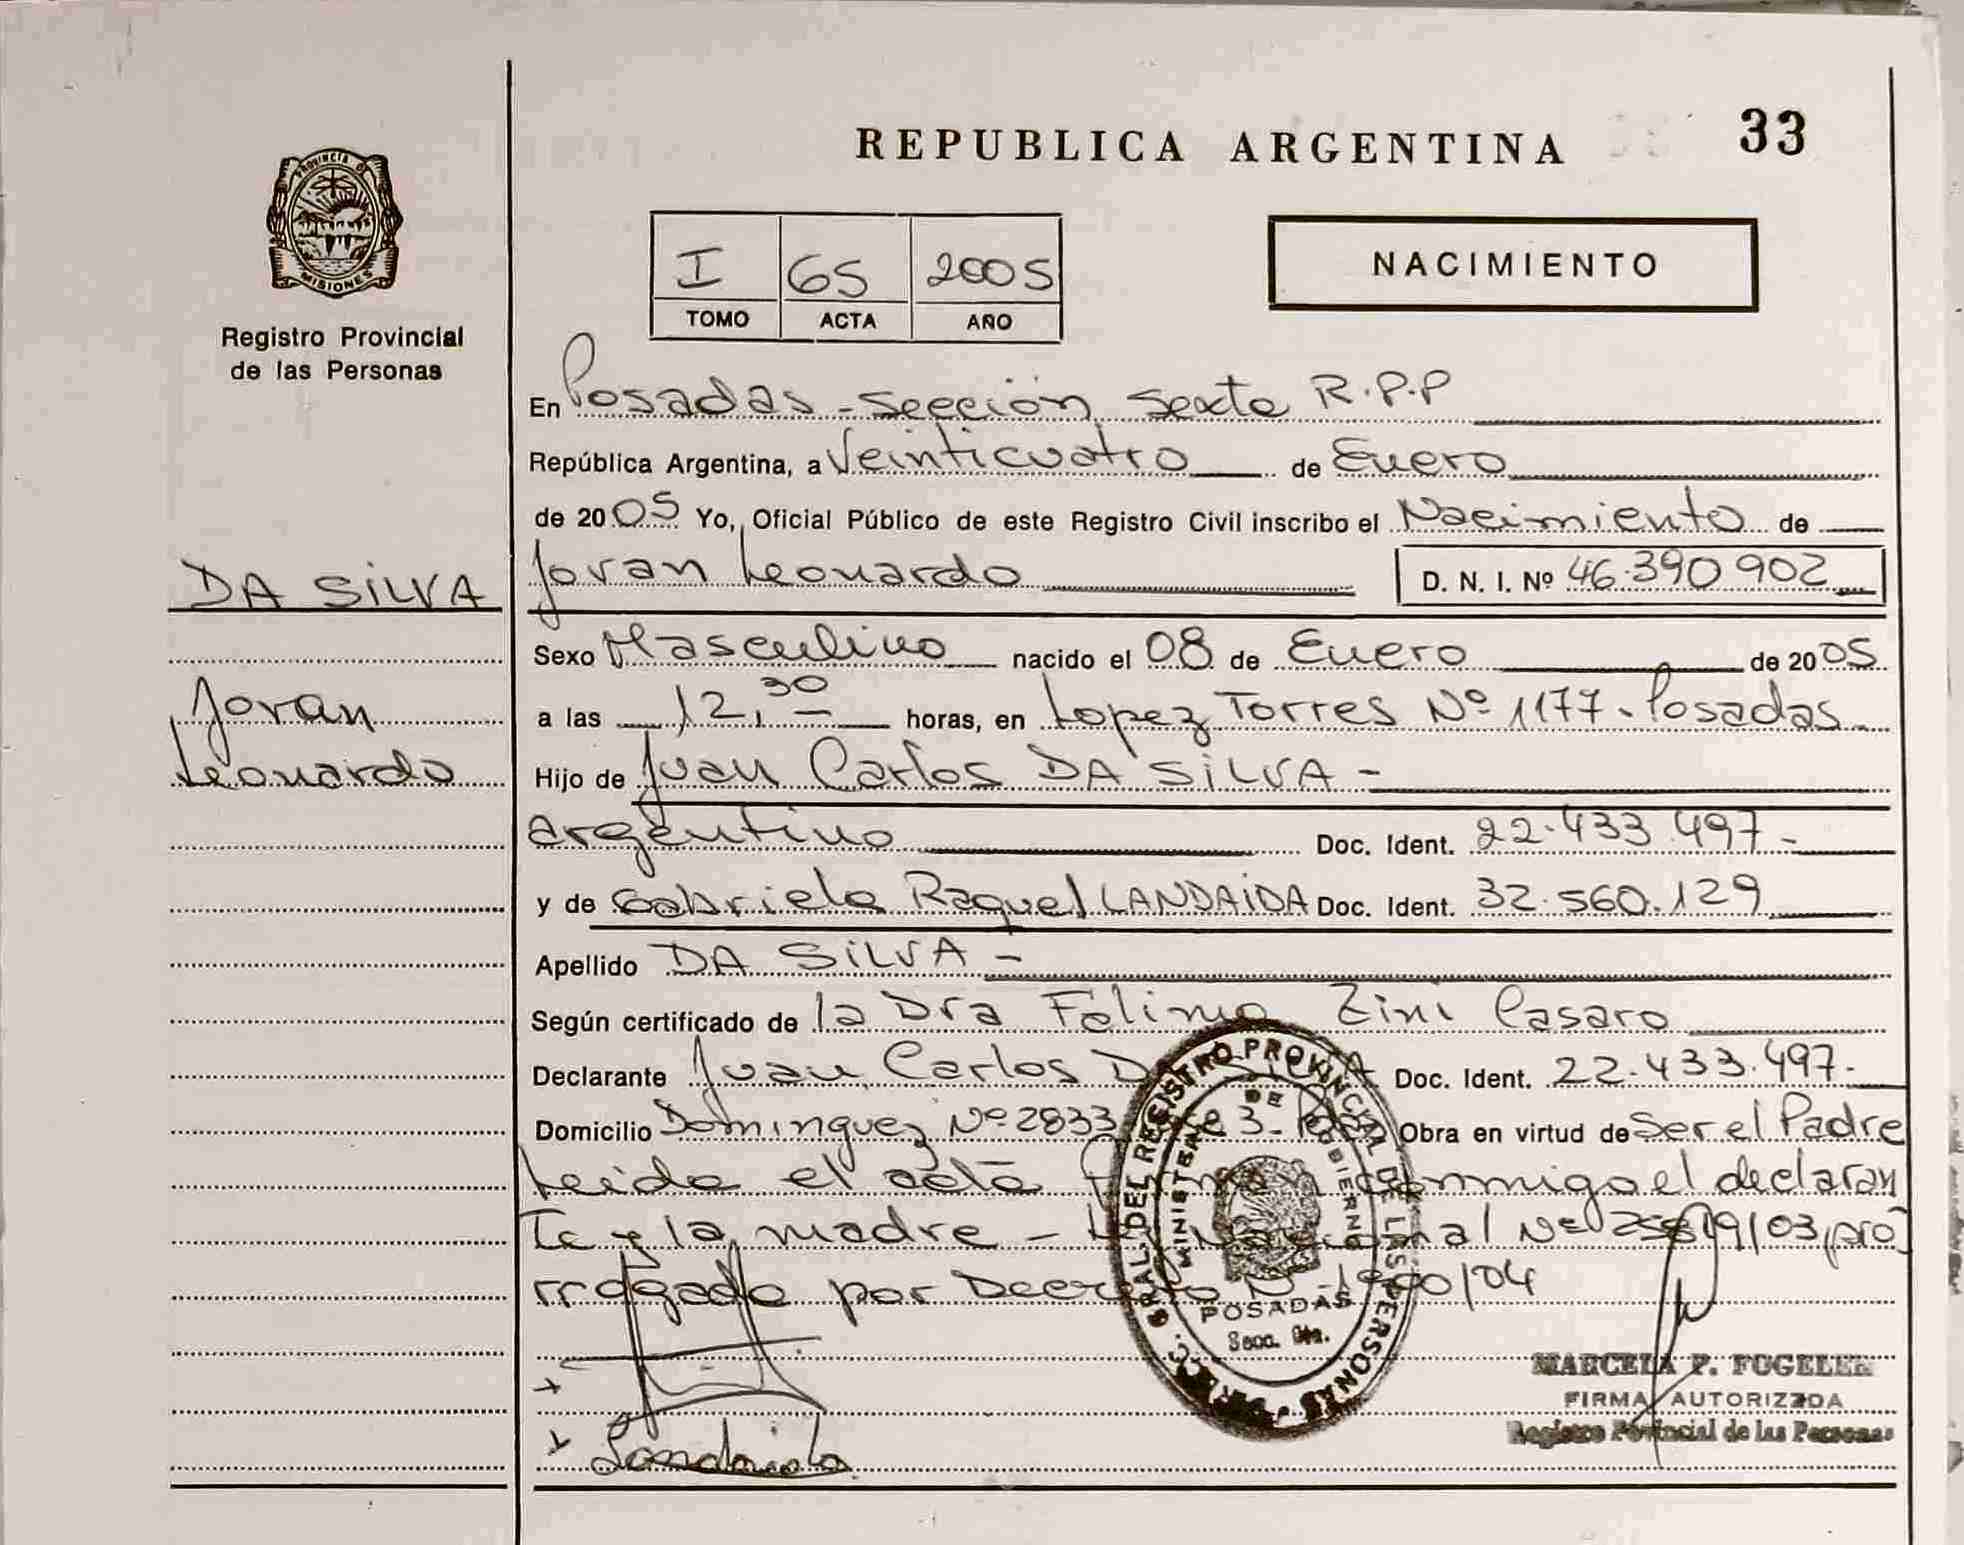 REPUBLICA ARGENTINA
33
PROVINCIA DE
MISIONES
Registro Provincial
de las Personas
I 65 2005
TOMO ACTA AÑO
NACIMIENTO
En Posadas - Sección Sexta R.P.P
República Argentina, a Veinticuatro de Enero
de 2005 Yo, Oficial Público de este Registro Civil inscribo el Nacimiento de
DA SILVA
Jovan Leonardo D. N. I. Nº 46.390 902
Sexo Masculino nacido el 08 de Enero de 2005
Jovan
a las 12,30 horas, en Lopez Torres Nº 1177. Posadas
Leonardo
Hijo de Juan Carlos DA SILVA -
argentino Doc. Ident. 22.433.497-
y de Gabriela Raquel LANDAIDA Doc. Ident. 32.560.129
Apellido DA SILVA -
Según certificado de la Dra Zini Casaro
Declarante Juan Carlos DA SILVA Doc. Ident. 22.433.497-
Domicilio Dominguez Nº 2833 3- Obra en virtud de Ser el Padre
Leida el acta conmigo el declaran
te y la madre - Nº 25819/03, pro
rrogado por Decreto Nº 1900/04
REGISTRO PROVINCIAL DE LAS PERSONAS
MINISTERIO DE GOBIERNO
POSADAS
Secc. 6ta.
MARCELA P. FOGELER
FIRMA AUTORIZADA
Registro Provincial de las Personas
Landaida